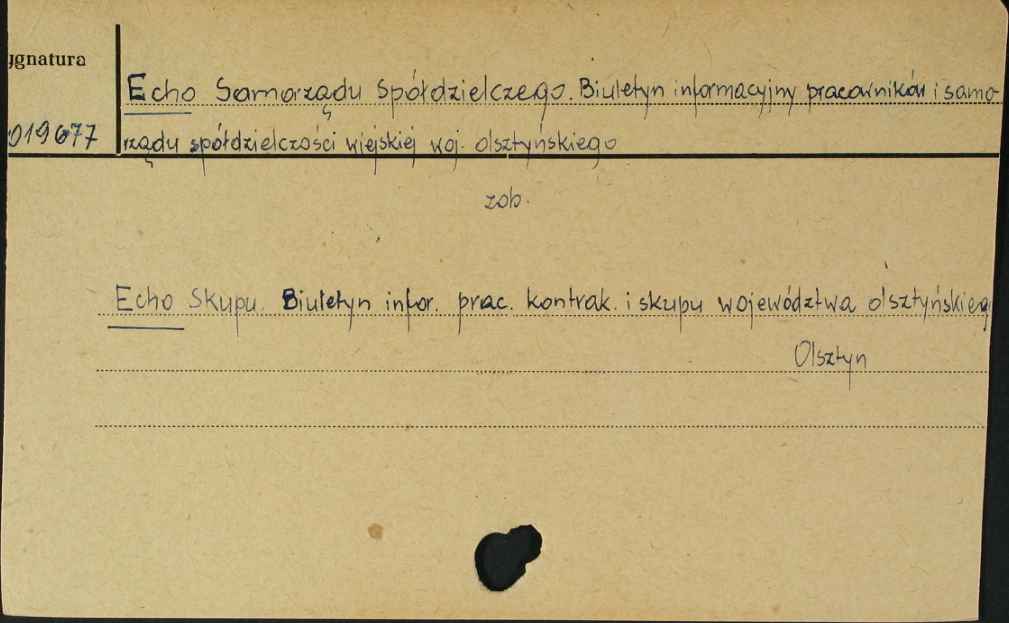 ygnatura
Echo Samorządu Spółdzielczego. Biuletyn informacyjny pracowników i samo-
019677 rządu spółdzielczości wiejskiej woj. olsztyńskiego
zob.
Echo Skupu. Biuletyn infor. prac. kontrak. i skupu województwa olsztyńskiego
Olsztyn